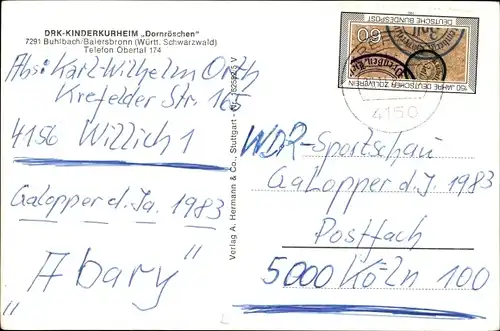 DRK-KINDERKURHEIM „Dornröschen"
7291 Buhlbach/Baiersbronn (Württ. Schwarzwald)
Telefon Obertal 174
Abs: Karl-Wilhelm Orth
Krefelder Str. 165
4156 Willich 1
Galopper d. Ja. 1983
"Abary"
Verlag A. Hermann & Co., Stuttgart - Nr.
DEUTSCHE BUNDESPOST
60
150 JAHRE DEUTSCHER ZOLLVEREIN
4150
WDR-Sportschau
Galopper d. J. 1983
Postfach
5000 Köln 100